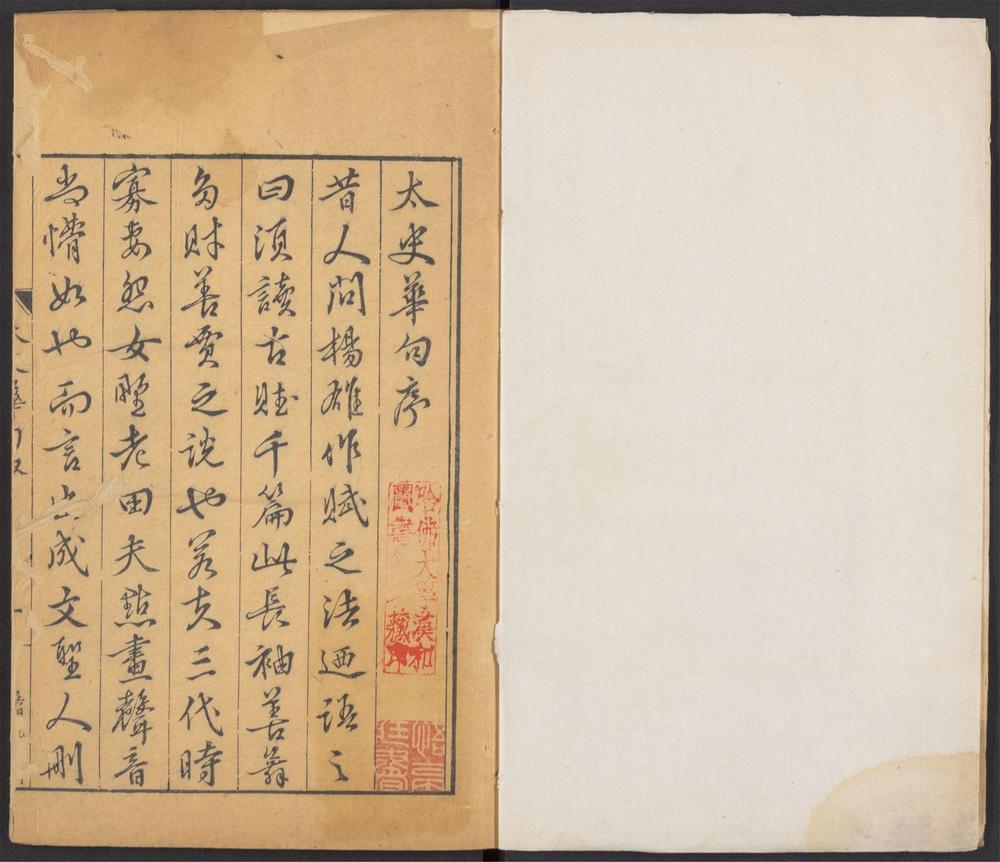 太史華句序
昔人問楊雄作賦之法迺語之
曰須讀古賦千篇此長袖善舞
多財善賈之説也若夫三代時
寡妻怨女野老田夫點畫聲音
尚懵如也而言出成文聖人刪
哈佛大學漢和
圖書館藏印